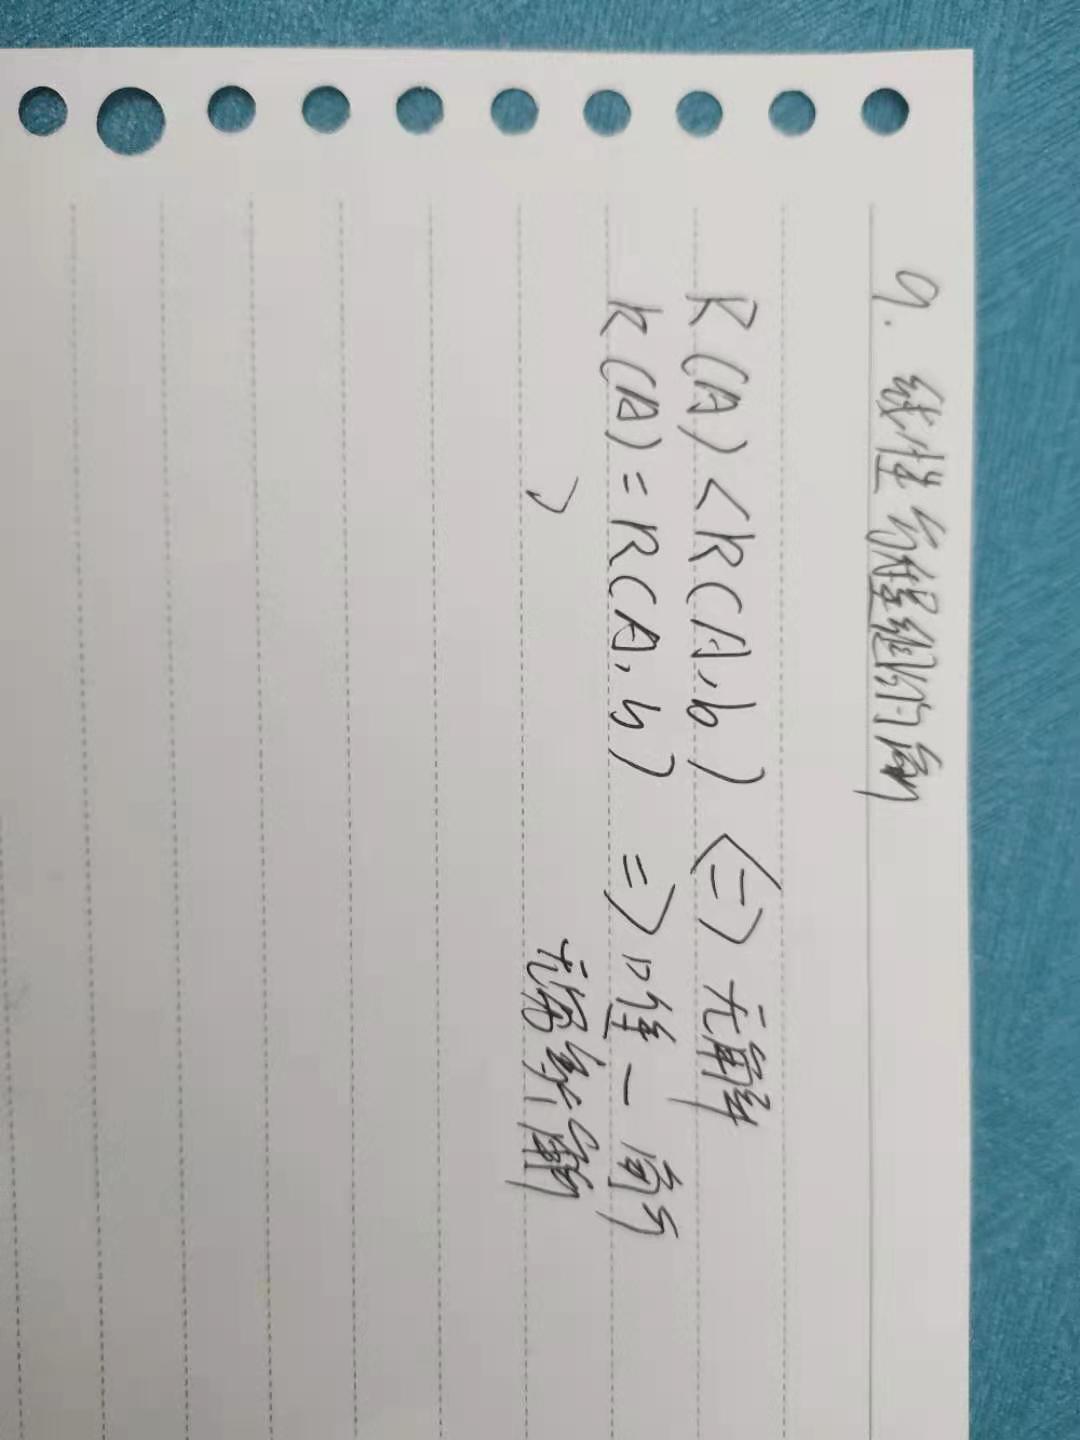 9. 线性方程组的解
R(A)<R(A,b) <=> 无解
R(A)=R(A,b) => 唯一解
无穷解